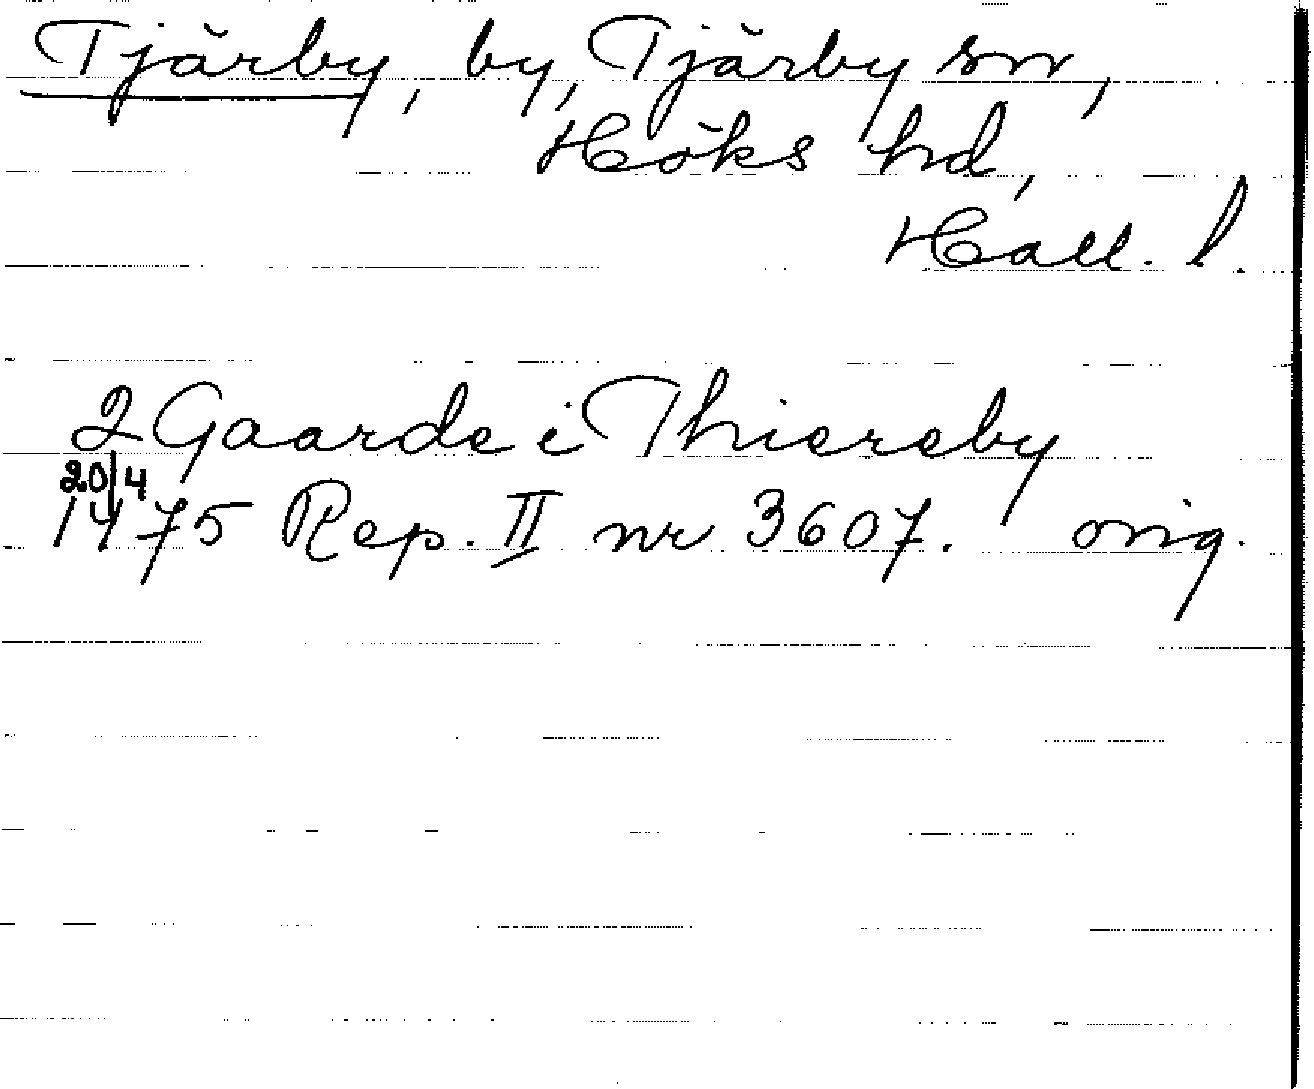 Tjärby, by, Tjärby sn,
Höks hd,
Hall. l.
2 Gaarde i Thiereby
20/4
1475 Rep. II nr 3607. orig.